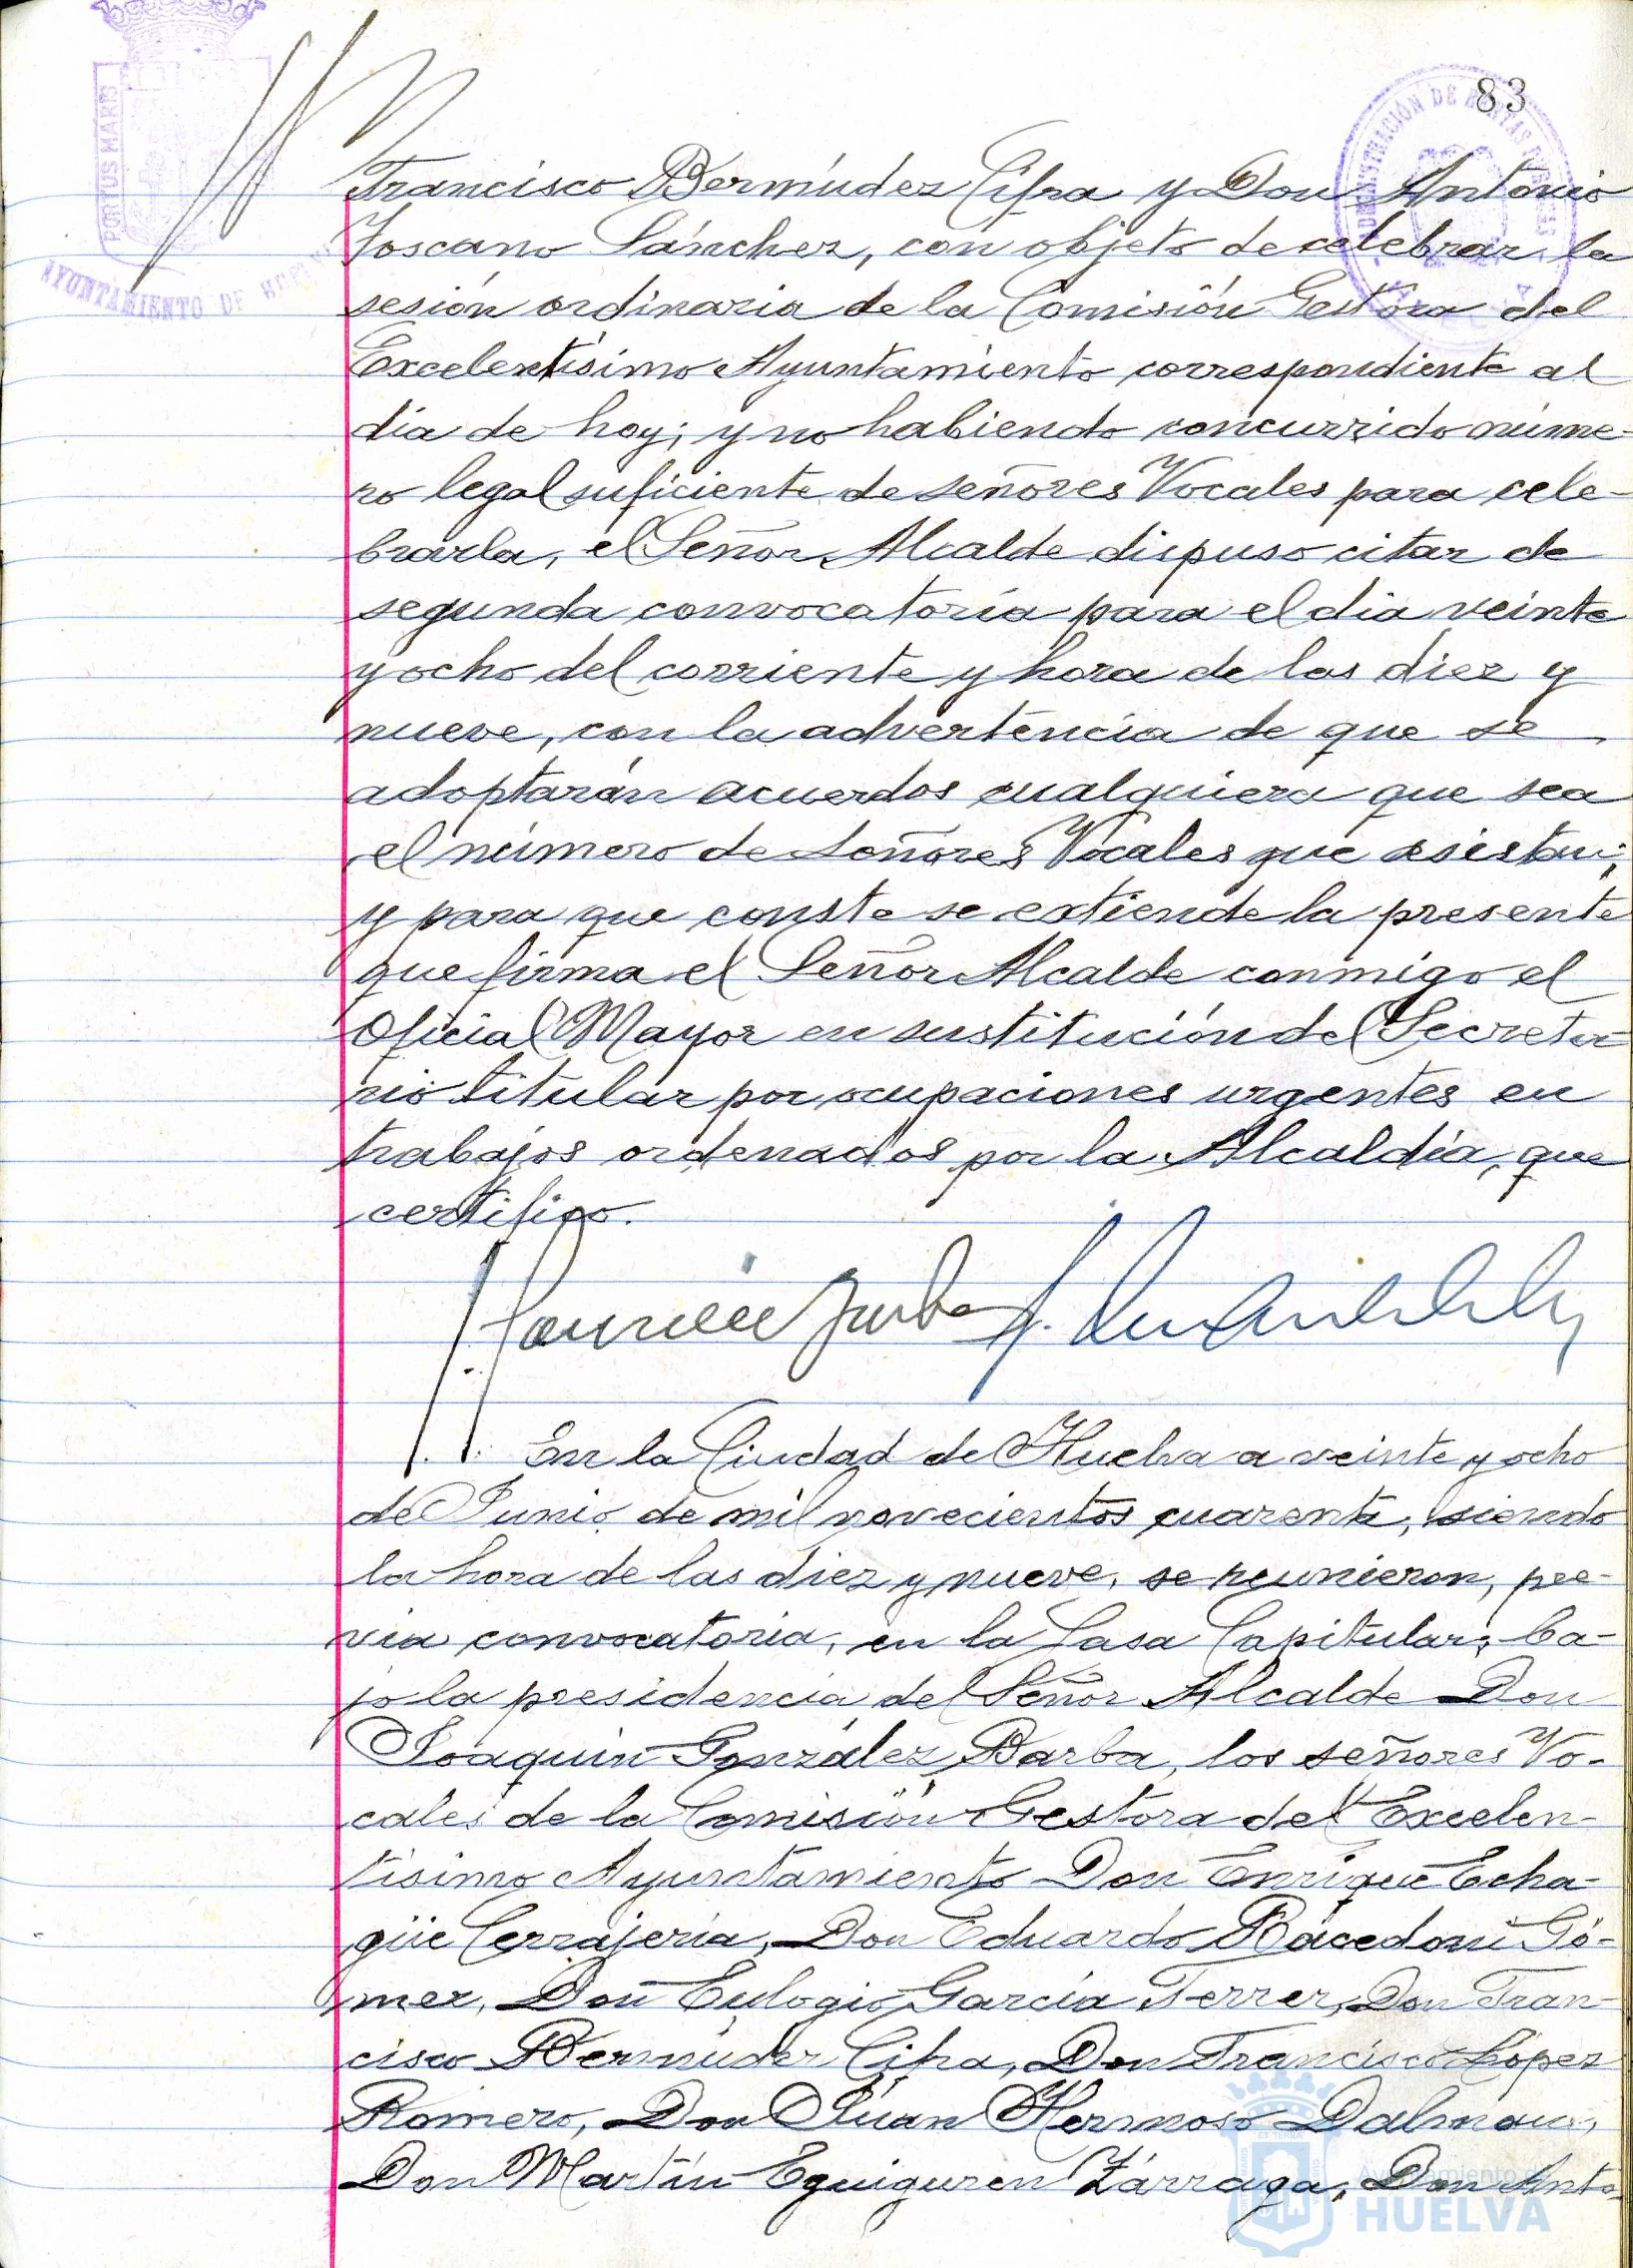 83
PORTUS MARIS
AYUNTAMIENTO DE HUELVA
ADMINISTRACIÓN DE RENTAS
Francisco Bermúdez Cifra y Don Antonio
Toscano Sánchez, con objeto de celebrar la
sesión ordinaria de la Comisión Gestora del
Excelentísimo Ayuntamiento correspondiente al
día de hoy; y no habiendo concurrido núme-
ro legal suficiente de señores Vocales para cele-
brarla, el Señor Alcalde dispuso citar de
segunda convocatoria para el dia veinte
y ocho del corriente y hora de las diez y
nueve, con la advertencia de que se
adoptarán acuerdos cualquiera que sea
el número de señores Vocales que asistan;
y para que conste se extiende la presente
que firma el Señor Alcalde conmigo el
Oficial Mayor en sustitución del Secreta-
rio titular por ocupaciones urgentes en
trabajos ordenados por la Alcaldía, que
certifico.
En la Ciudad de Huelva a veinte y ocho
de Junio de mil novecientos cuarenta, siendo
la hora de las diez y nueve, se reunieron, pre-
via convocatoria, en la Casa Capitular, ba-
jo la presidencia del Señor Alcalde Don
Joaquin González Barba, los señores Vo-
cales de la Comisión Gestora del Excelen-
tísimo Ayuntamiento Don Enrique Echa-
güe Cerrajería, Don Eduardo Rácedoni Gó-
mez, Don Eulogio García Ferrer, Don Fran-
cisco Bermúdez Cifra, Don Francisco López
Romero, Don Juan Hermoso Dalmau,
Don Martín Eguiguren Zárraga, Don Anto
Ayuntamiento de
HUELVA